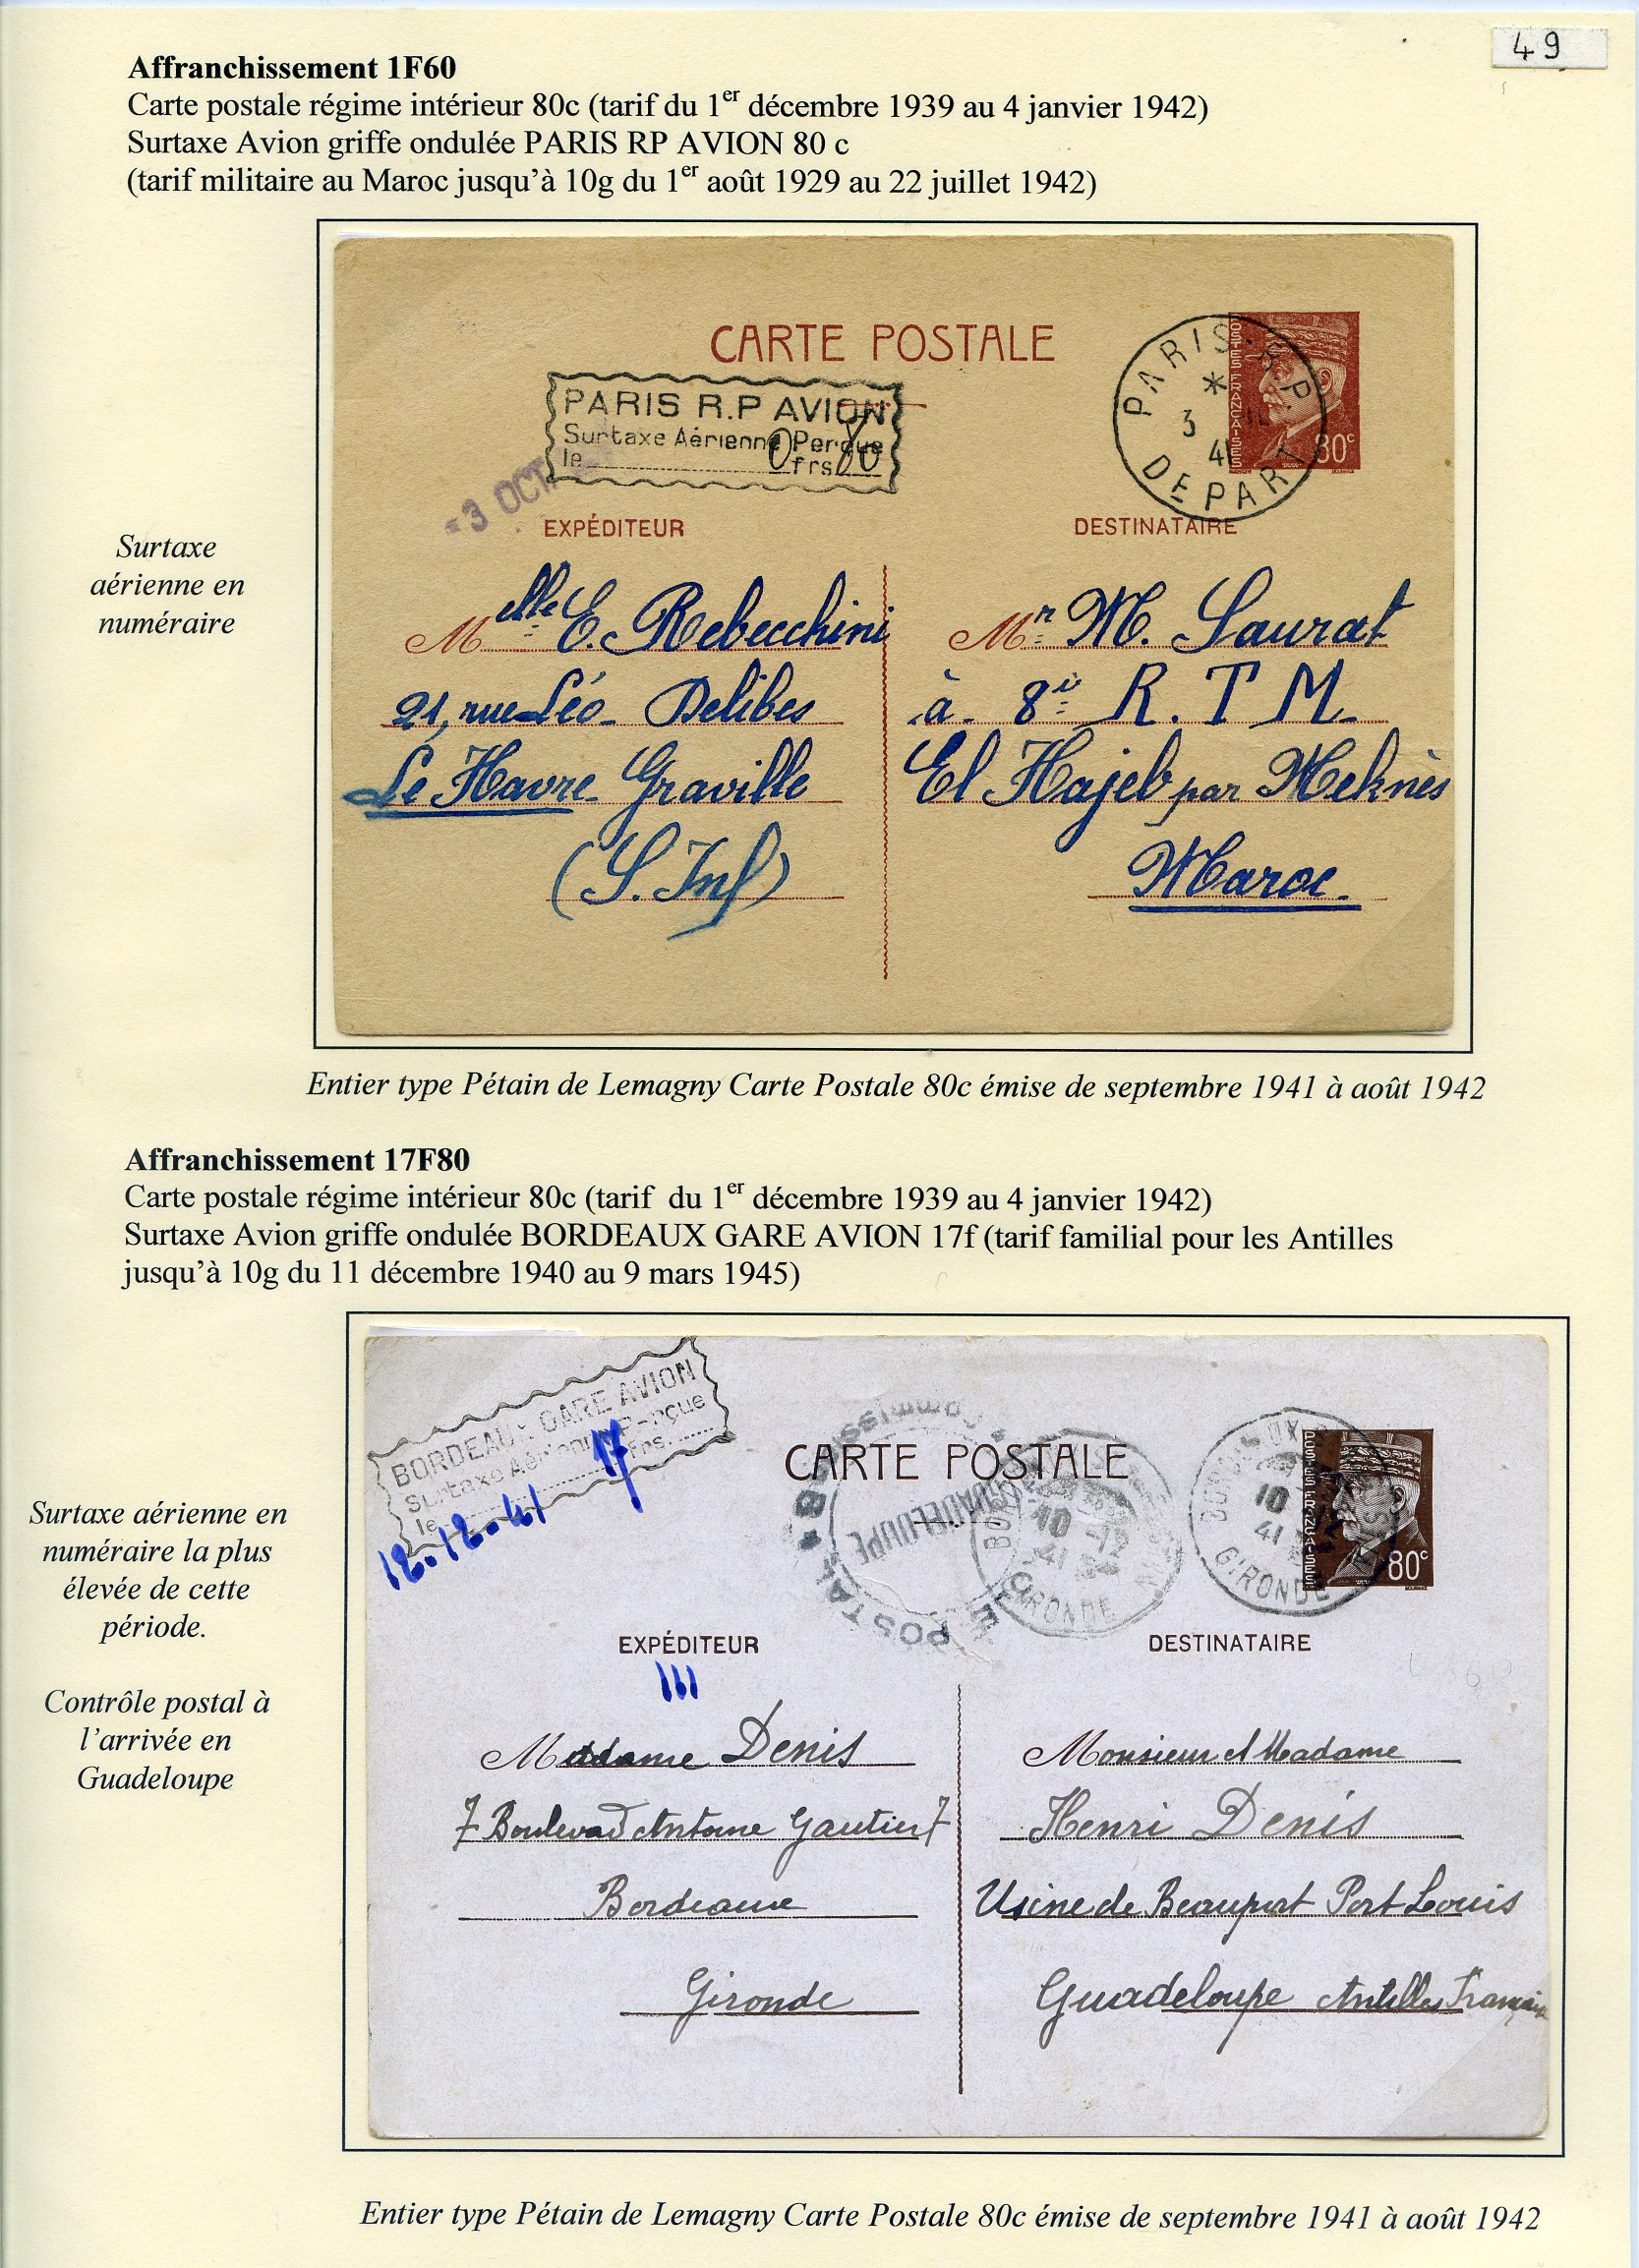 49
Affranchissement 1F60
Carte postale régime intérieur 80c (tarif du 1er décembre 1939 au 4 janvier 1942)
Surtaxe Avion griffe ondulée PARIS RP AVION 80 c
(tarif militaire au Maroc jusqu'à 10g du 1er août 1929 au 22 juillet 1942)
CARTE POSTALE
PARIS R.P AVION
Surtaxe Aérienne Perçue
le 0 frs 80
-3 OCT
PARIS R.P
*
3 10
41
DEPART
POSTES FRANÇAISES
80c
EXPÉDITEUR
DESTINATAIRE
Surtaxe
aérienne en
numéraire
Melle E. Rebecchini
21, rue Léo Delibes
Le Havre Graville
(S. Inf)
Mr M. Saurat
à 8è R. T M
El Hajeb par Meknès
Maroc
Entier type Pétain de Lemagny Carte Postale 80c émise de septembre 1941 à août 1942
Affranchissement 17F80
Carte postale régime intérieur 80c (tarif du 1er décembre 1939 au 4 janvier 1942)
Surtaxe Avion griffe ondulée BORDEAUX GARE AVION 17f (tarif familial pour les Antilles
jusqu'à 10g du 11 décembre 1940 au 9 mars 1945)
BORDEAUX GARE AVION
Surtaxe Aérienne Perçue
le 17 Frs.
12.12.41
CARTE POSTALE
GUADELOUPE
POSTAL
10-12
41
GIRONDE
BORDEAUX
10 12
41
GIRONDE
POSTES FRANÇAISES
80c
EXPÉDITEUR
DESTINATAIRE
Surtaxe aérienne en
numéraire la plus
élevée de cette
période.
Contrôle postal à
l'arrivée en
Guadeloupe
Madame Denis
7 Boulevard Antoine Gautier 7
Bordeaux
Gironde
Monsieur et Madame
Henri Denis
Usine de Beauport Port Louis
Guadeloupe Antilles Françaises
Entier type Pétain de Lemagny Carte Postale 80c émise de septembre 1941 à août 1942